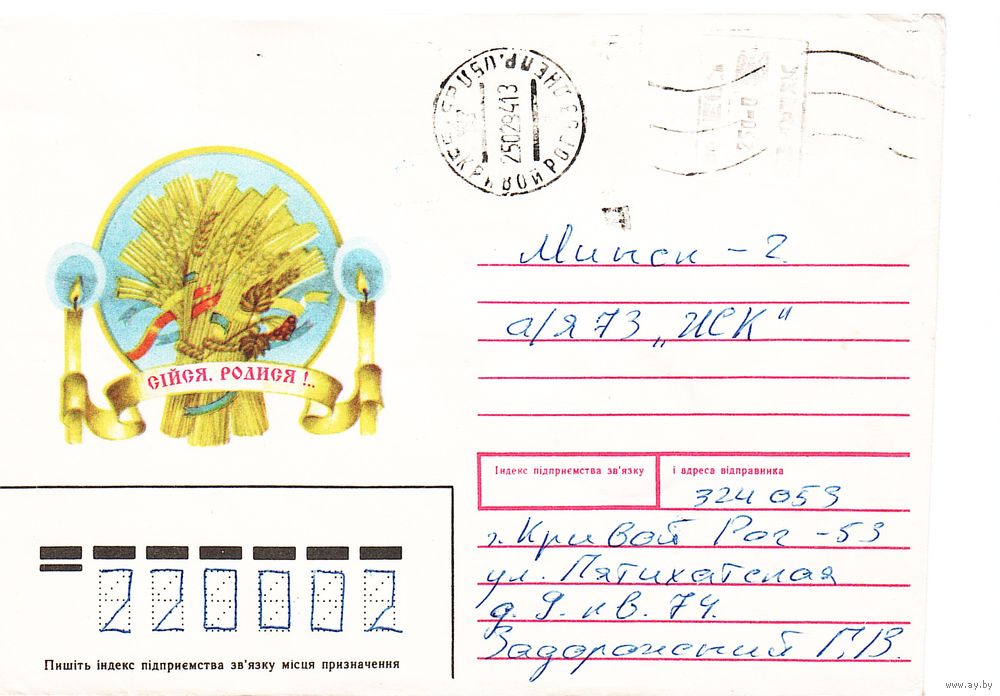 КРИВОЙ РОГ 53 ДНЕПР. ОБЛ
25029413
Минск - 2
а/я 73 „ИСК"
СІЙСЯ, РОДИСЯ !..
Індекс підприємства зв'язку
і адреса відправника
324 053
г. Кривой Рог - 53
ул. Пятихатская
д. 9. кв. 74.
Задорожский Г.В.
220002
Пишіть індекс підприємства зв'язку місця призначення
www.ay.by